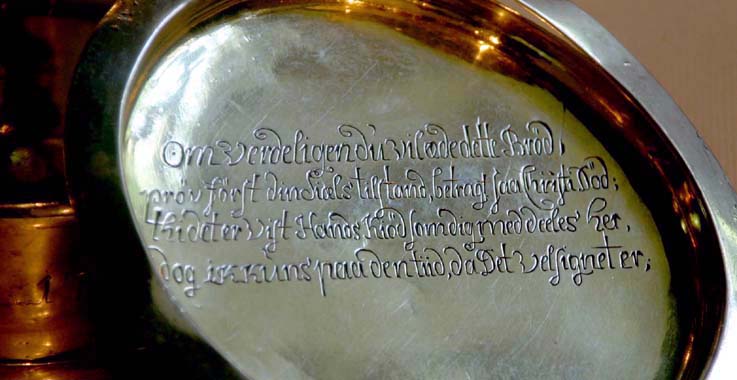 Om verdeligen du vil æde dette Bröd,
pröv förſt din Siæls tilſtand, betragt ſaa Chriſti Död;
thi det er viſt Hands Kiöd ſom dig meddeeles her,
dog ikkuns paa den tiid, da Det velſignet er;